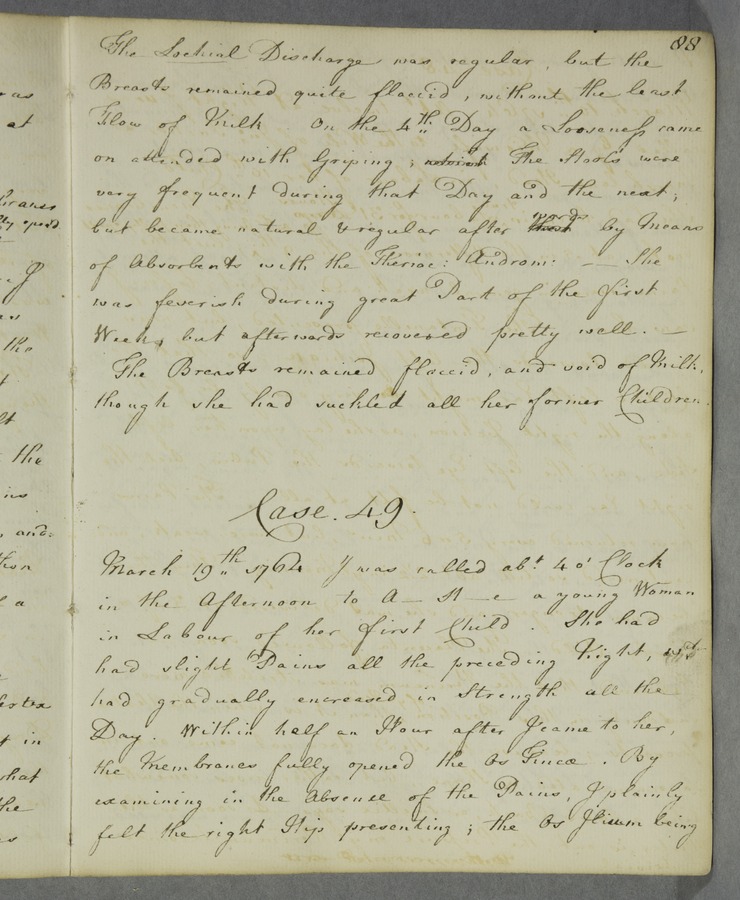 88
The Lochial Discharge was regular, but the
Breasts remained quite flaccid, without the least
Flow of Milk On the 4th Day a Looseness came
on attended with Griping; The Stools were
very frequent during that Day and the next;
but became natural & regular after wards by Means
of Absorbents with the Theriac: Androm: — She
was feverish during great Part of the first
Week, but afterwards recovered pretty well. —
The Breasts remained flaccid, and void of Milk,
though she had suckled all her former Children.
Case. 49.
March 19th 1764 I was called abt 4 o' Clock
in the Afternoon to A— St—e a young Woman
in Labour of her first Child. She had
had slight Pains all the preceding Night, wch
had gradually encreased in Strength all the
Day. Within half an Hour after I came to her,
the Membranes fully opened the Os Tincæ. By
examining in the Absence of the Pains, I plainly
felt the right Hip presenting; the Os Ilium being
as
at
the
the
and
a
in
what
the